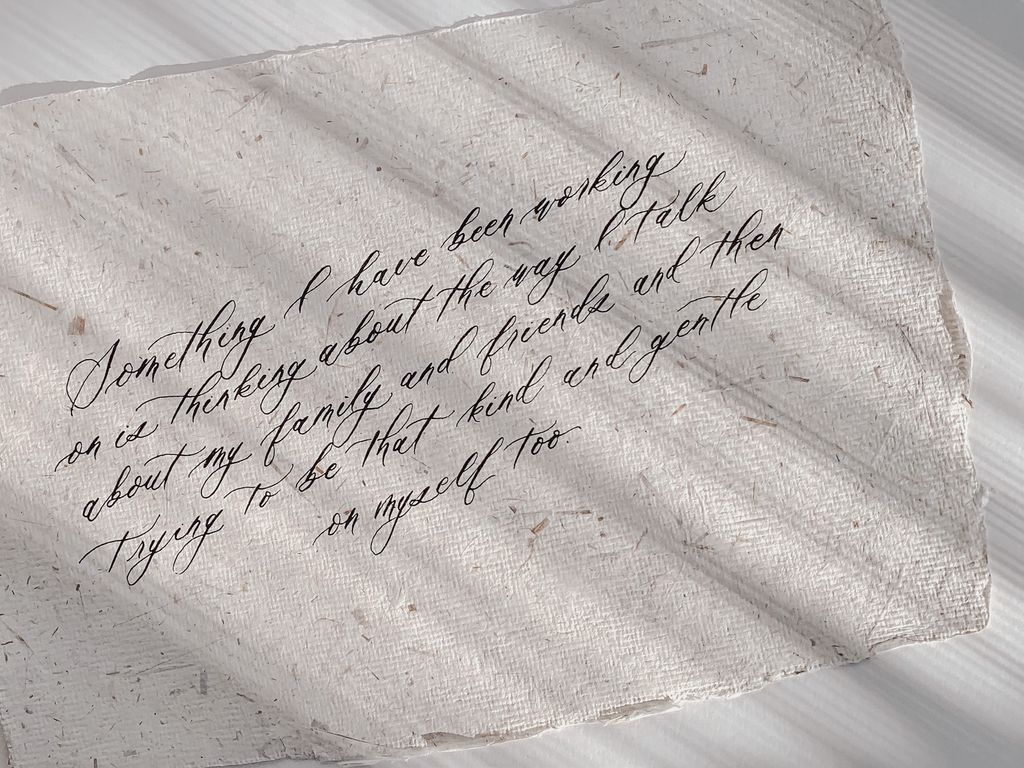 Something I have been working
on is thinking about the way I talk
about my family and friends and then
trying to be that kind and gentle
on myself too.